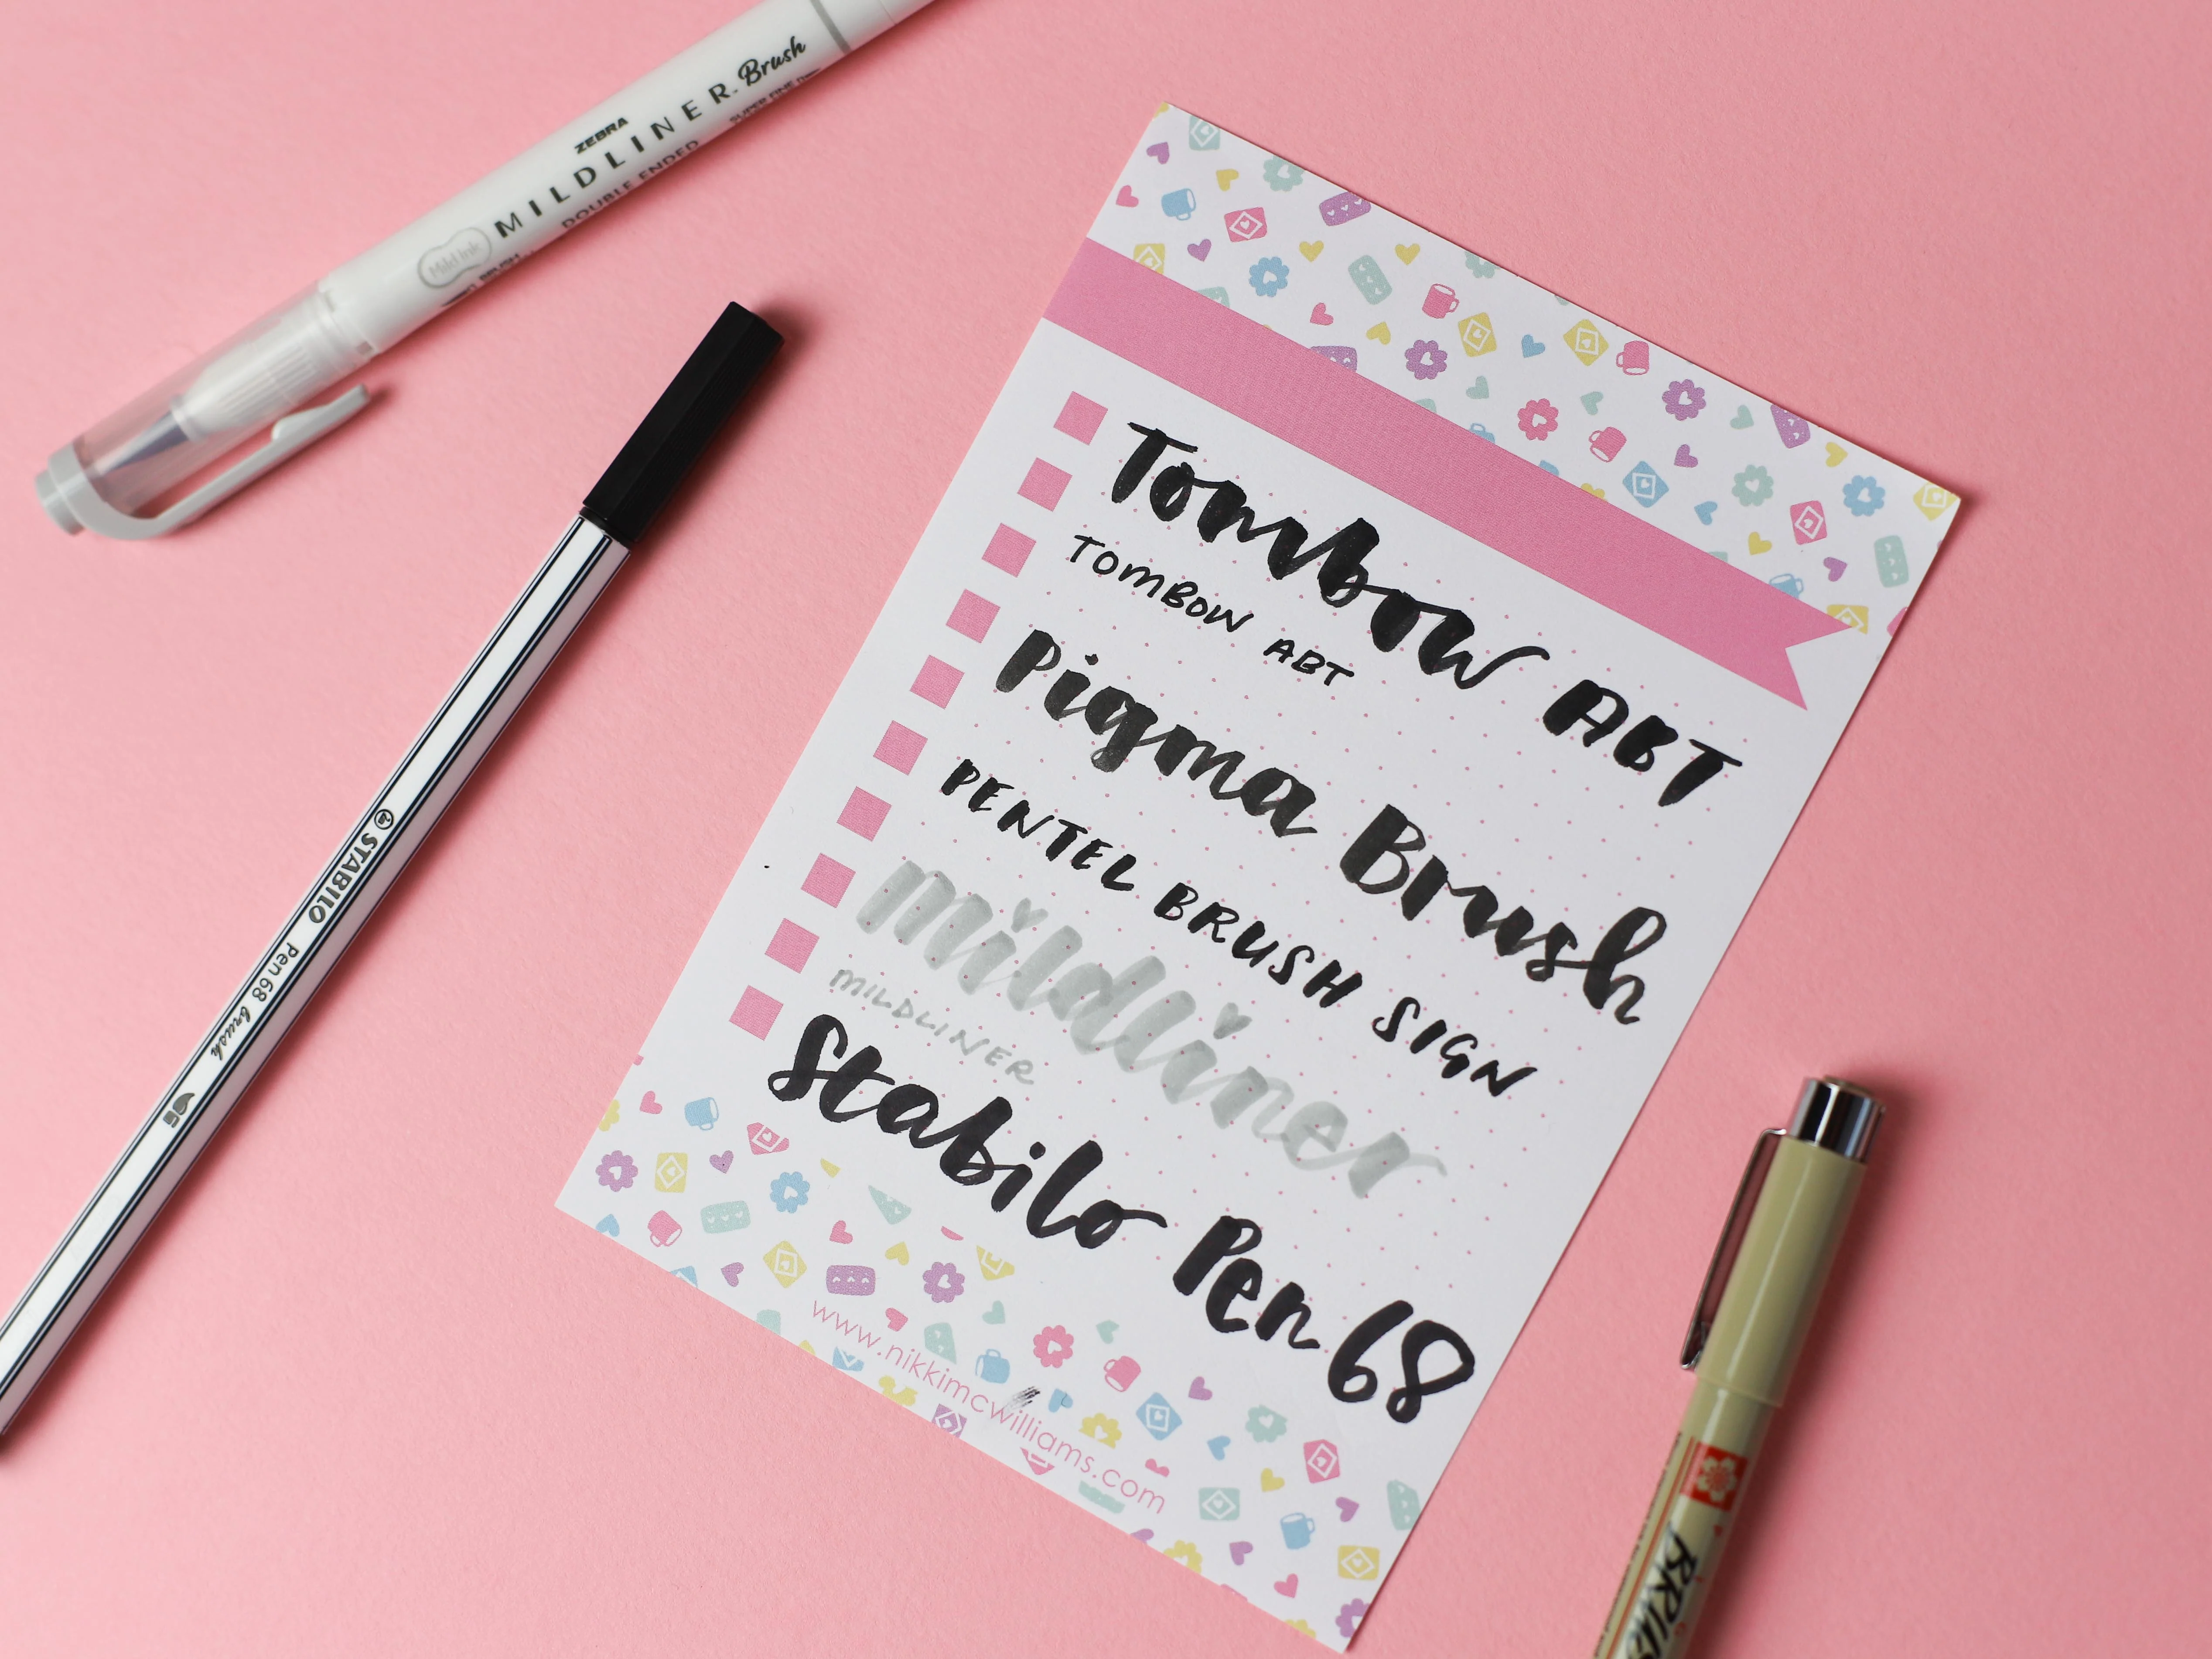 ZEBRA
MILDLINER. Brush
DOUBLE ENDED
Mild Ink
BRUSH
STABILO Pen 68 brush
Tombow ABT
TOMBOW ABT
Pigma Brush
PENTEL BRUSH SIGN
mildliner
MILDLINER
Stabilo Pen 68
www.nikkimcwilliams.com